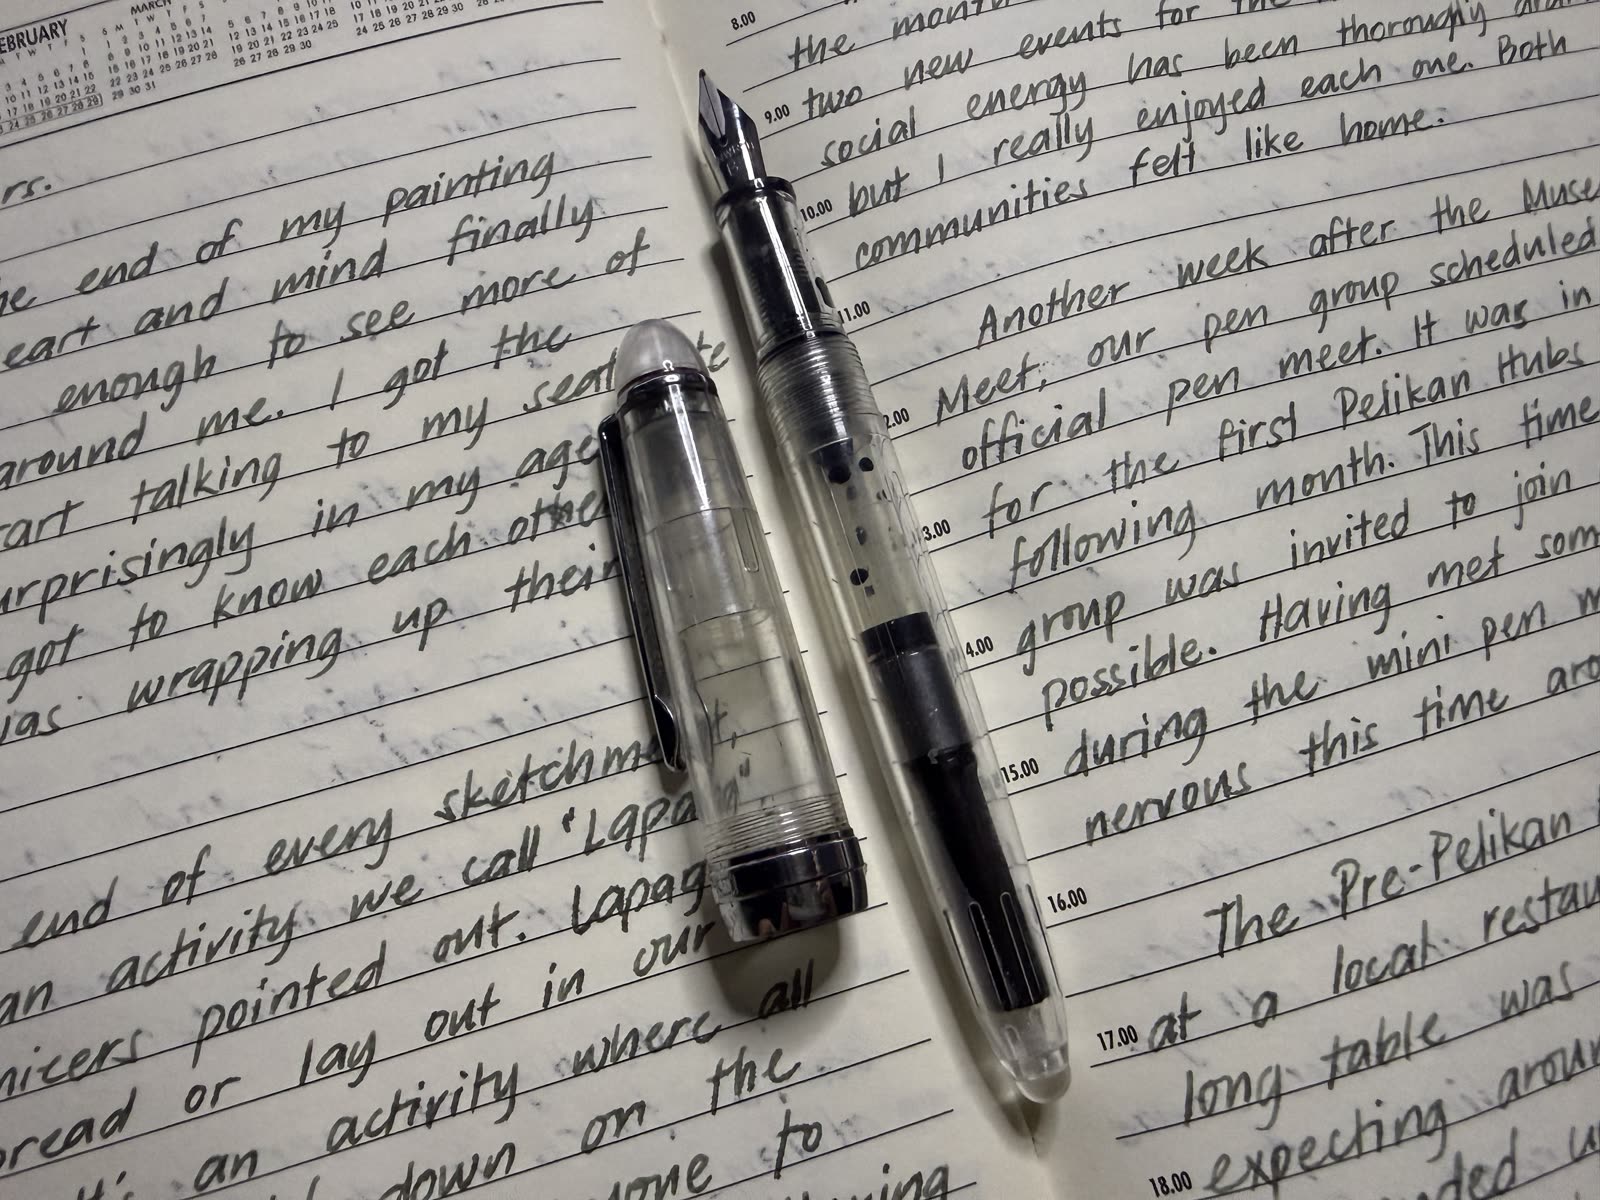 FEBRUARY
MARCH
rs.
end of my painting
and mind finally
enough to see more of
around me. I got the
talking to my seat
surprisingly in my age
got to know each other
was wrapping up their
end of every sketchme
an activity we call "Lapag"
pointed out. Lapag
or lay out in our
an activity where all
down on the
to
8.00
9.00
10.00
11.00
3.00
15.00
16.00
17.00
18.00
the month
two new events for the
social energy has been thoroughly
but I really enjoyed each one. Both
communities felt like home.
Another week after the
Meet, our pen group scheduled
official pen meet. It was in
for the first Pelikan Hubs
following month. This time
group was invited to join
possible. Having met som
during the mini pen m
nervous this time
The Pre-Pelikan
at a local restau
long table was
expecting